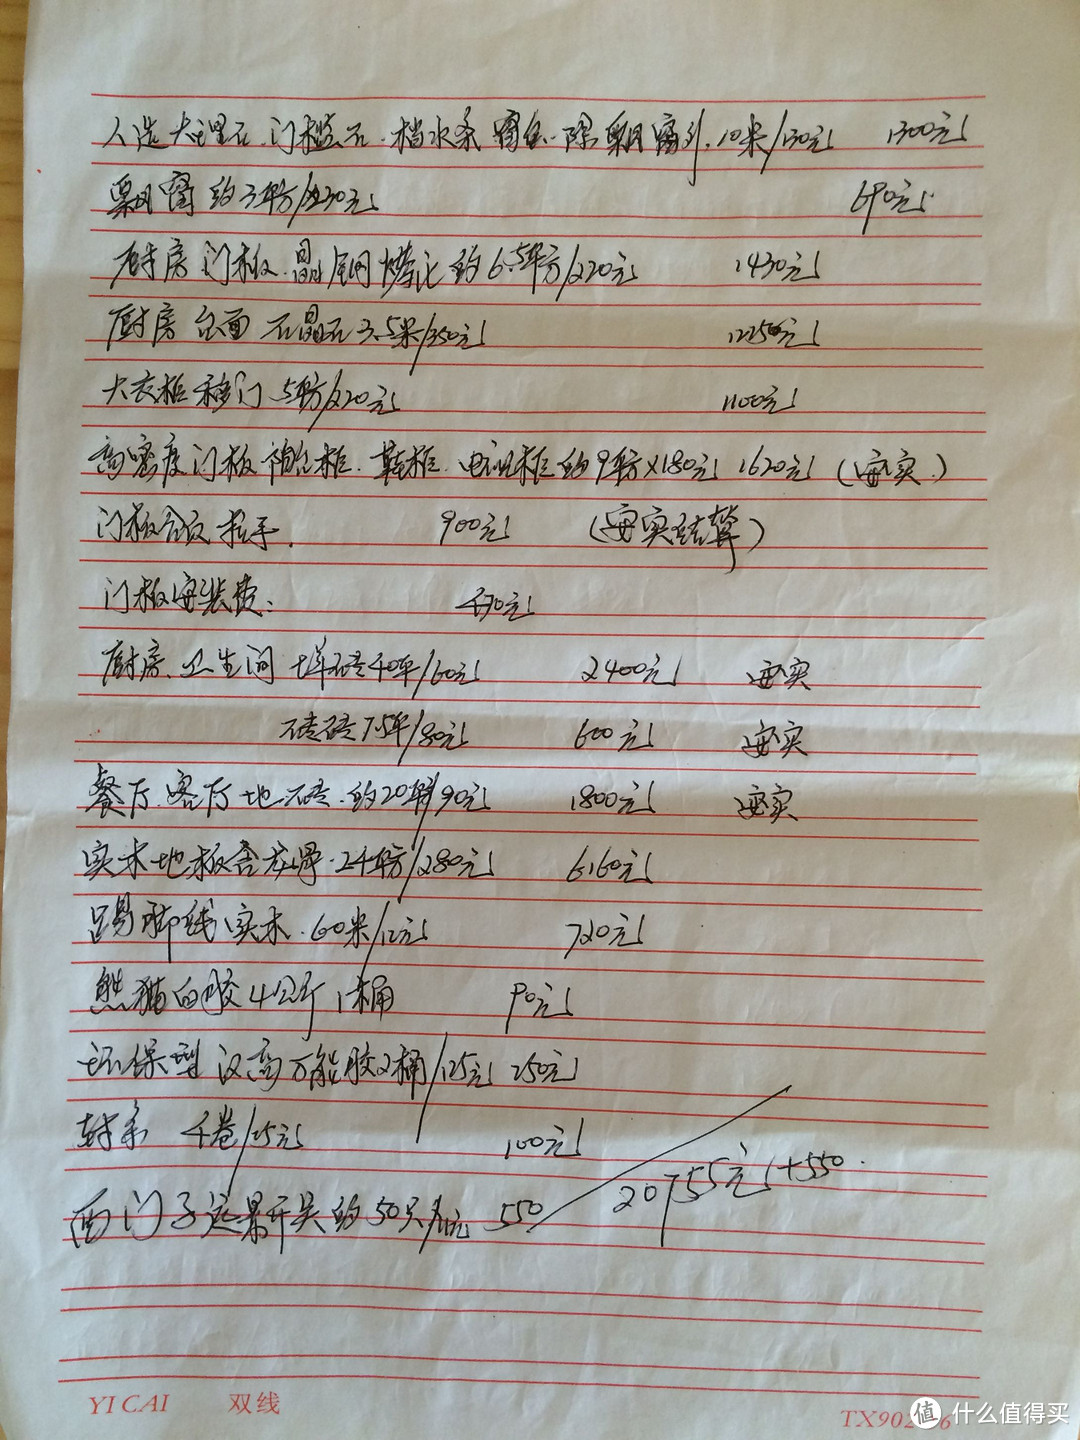 人造大理石.门槛石.档水条 窗台.除飘窗外.10米/130元 1300元
飘窗 约3平方/230元 690元
厨房门板.晶钢烤化约6.5平方/220元 1430元
厨房台面 石晶石3.5米/350元 1225元
大衣柜移门 5平方/220元 1100元
高密度门板阳台柜.鞋柜.电视柜约9平方X180元 1620元 (按实.)
门板合页 拉手. 900元 (按实结算)
门板安装费: 元
厨房.卫生间 墙砖40平/60元 2400元 按实
砖 7.5平/80元 600元 按实
餐厅.客厅地砖.约20平/90元 1800元 按实
实木地板含龙骨.24平方/280元 6160元
踢脚线实木.60米/12元 720元
熊猫白胶4公斤1桶 90元
环保型 汉高万能胶2桶/125元 250元
4卷/25元 100元
西门子远景开关约50只/11元 550 20755元+550.
YI CAI 双线
TX902 6
值 什么值得买